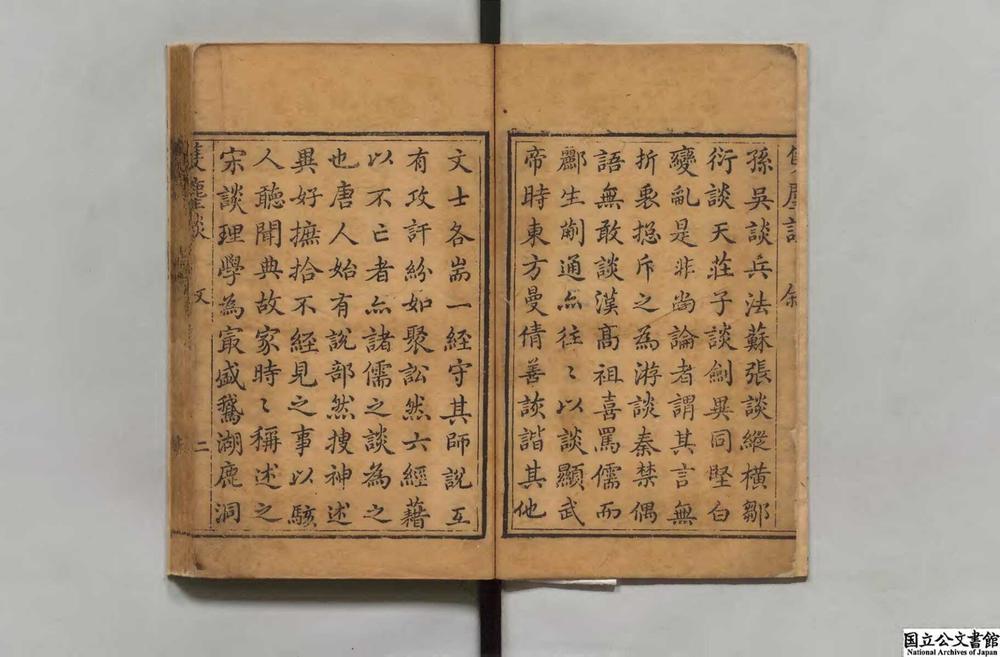 孫吳談兵法蘇張談縱橫鄒
衍談天莊子談劍異同堅白
變亂是非尚論者謂其言無
折衷揔斥之為游談秦禁偶
語無敢談漢髙祖喜罵儒而
酈生蒯通亦往〻以談顯武
帝時東方曼倩善詼諧其他
文士各耑一經守其師說互
有攻訐紛如聚訟然六經藉
以不亡者亦諸儒之談為之
也唐人始有說部然搜神述
異好摭拾不經見之事以駭
人聽聞典故家時〻稱述之
宋談理學為㝡盛鵝湖鹿洞
隻麈談 二
国立公文書館
National Archives of Japan